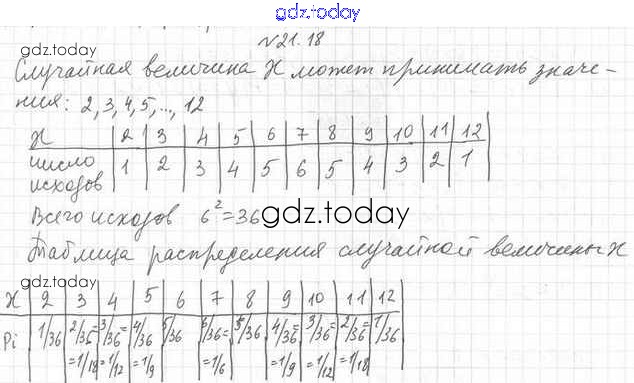 gdz.today
gdz.today
№21.18
Случайная величина X может принимать значе-
ния: 2, 3, 4, 5, ..., 12
gdz.today
X 2 3 4 5 6 7 8 9 10 11 12
число исходов 1 2 3 4 5 6 5 4 3 2 1
Всего исходов 6²=36
gdz.today
Таблица распределения случайной величины X
gdz.today
X 2 3 4 5 6 7 8 9 10 11 12
Pi 1/36 2/36= 3/36= 4/36 5/36 6/36= 5/36 4/36= 3/36= 2/36= 1/36
=1/18 =1/12 =1/9 =1/6 =1/9 =1/12 =1/18